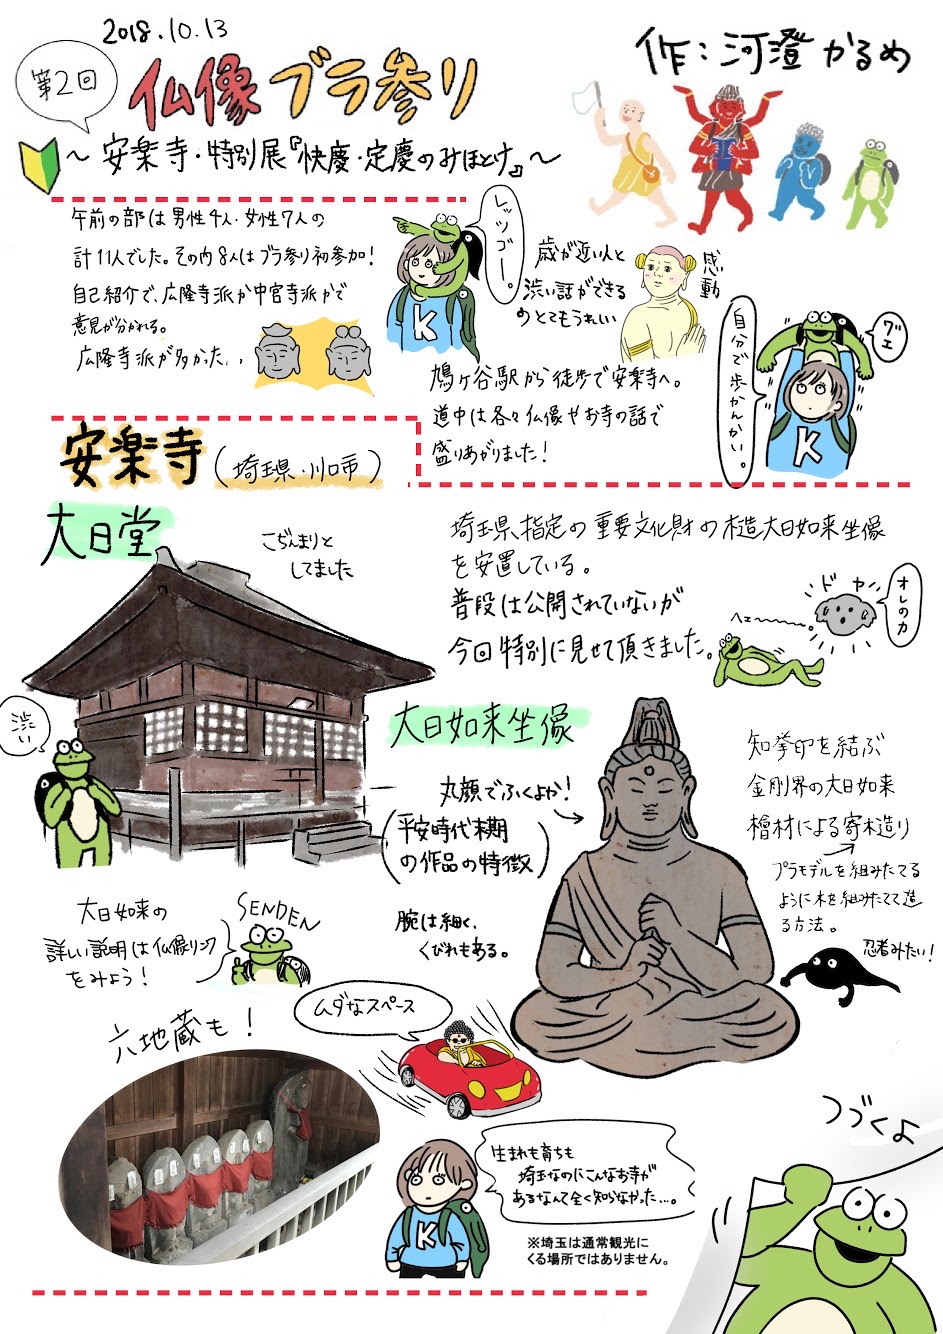 2018.10.13
第2回
仏像ブラ参り
作:河澄かるめ
〜安楽寺・特別展『快慶・定慶のみほとけ』〜
午前の部は男性4人・女性7人の
計11人でした。その内8人はブラ参り初参加!
自己紹介で、広隆寺派か中宮寺派かで
意見が分かれる。
広隆寺派が多かった..
レッツゴー。
K
歳が近い人と
渋い話ができる
のとてもうれしい
感動
鳩ヶ谷駅から徒歩で安楽寺へ。
道中は各々仏像やお寺の話で
盛りあがりました!
自分で歩かんかい。
グエ
K
安楽寺(埼玉県・川口市)
大日堂
こぢんまりと
してました
渋い
埼玉県指定の重要文化財の木造大日如来坐像
を安置している。
普段は公開されていないが
今回特別に見せて頂きました。
ヘェー
ドヤ
オレの力
大日如来坐像
丸顔でふくよか!
(平安時代末期
の作品の特徴)
腕は細く、
くびれもある。
知拳印を結ぶ
金剛界の大日如来
檜材による寄木造り
プラモデルを組みたてる
ように木を組みたてて造
る方法。
忍者みたい!
大日如来の
詳しい説明は仏像リンク
をみよう!
SENDEN
六地蔵も!
ムダなスペース
生まれも育ちも
埼玉なのにこんなお寺が
あるなんて全く知らなかった…。
K
※埼玉は通常観光に
くる場所ではありません。
つづくよ